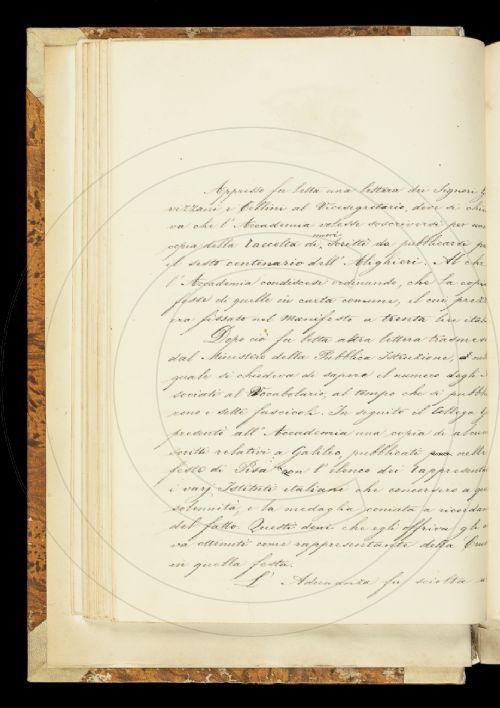 Appresso fu letta una lettera dei Signori G
vizzani e Cellini al Vicesegretario, dove si chie
va che l'Accademia volesse soscriversi per una
copia della raccolta di nuovi Scritti da pubblicarsi p
il sesto centenario dell'Alighieri. Al che
l'Accademia condiscese ordinando, che la copia
fosse di quelle in carta comune, il cui prezz
era fissato nel Manifesto a trenta lire ital
Dopo ciò fu letta altra lettera trasmes
dal Ministero della Pubblica Istruzione, nel
quale si chiedeva di sapere il numero degli As
sociati al Vocabolario, al tempo che si pubbli
rono i sette fascicoli. In seguito il Collega
presentò all'Accademia una copia di alcun
scritti relativi a Galileo, pubblicati nelle
feste di Pisa con l'elenco dei rappresentan
i varj Istituti italiani che concorsero a que
solennità, e la medaglia coniata a ricordan
del fatto. Questi doni che egli offriva gli a
va ottenuti come rappresentante della Crus
in quella festa.
L'Adunanza fu sciolta a